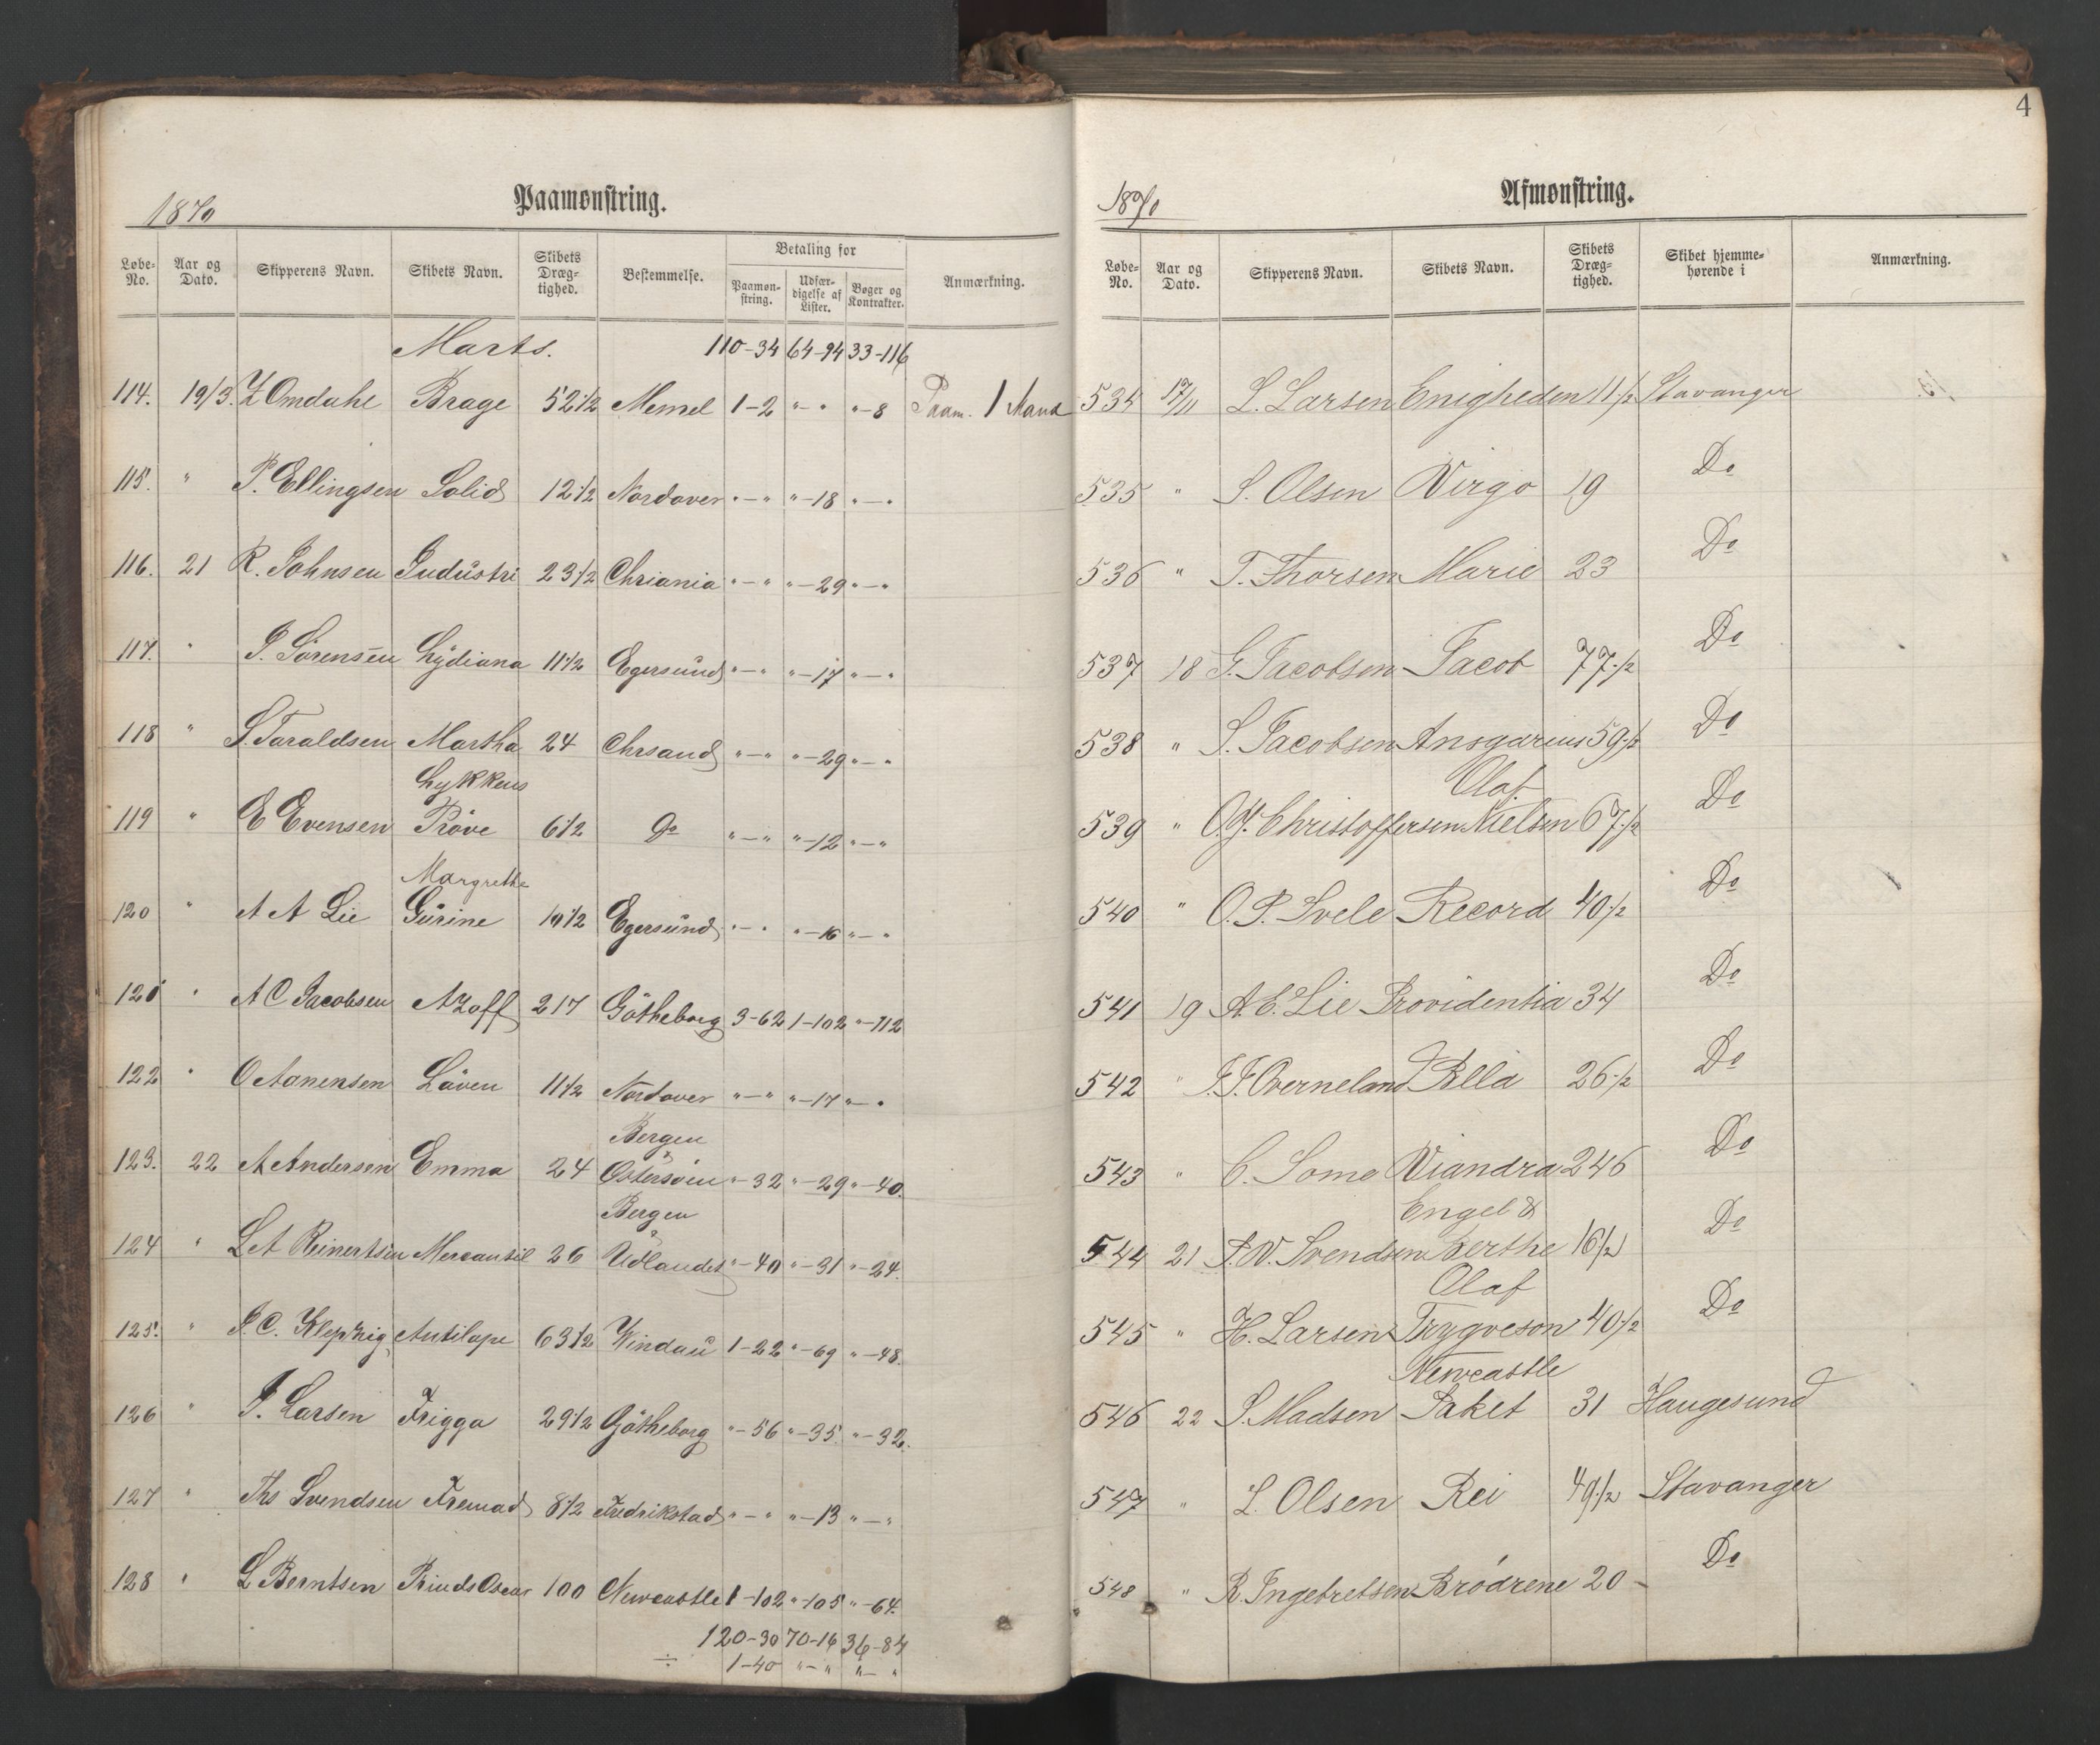 1870
Paamønstring.
Løbe-No. | Aar og Dato. | Skipperens Navn. | Skibets Navn. | Skibets Dræg-tighed. | Bestemmelse. | Betaling for | Paamøn-string. | Udfær-digelse af Lister. | Bøger og Kontrakter. | Anmærkning.
Marts. 110-34 64-94 33-116
114. 19/3. Z Omdahl Brage 52 1/2 Memel 1-2 "-" "-8 Paam. 1 Mand
115. " P. Ellingsen Solid 12 1/2 Nordover "-" "-18 "-"
116. 21 R. Johnsen Industri 23 1/2 Chriania "-" "-29 "-"
117. " J. Sørensen Lydiana 11 1/2 Egersund "-" "-17 "-"
118 " S. Taraldsen Martha 24 Chrsand "-" "-29 "-"
Lykkens
119 " E Evensen Prøve 6 1/2 Do "-" "-12 "-"
Margrethe
120 " A A Lie Gurine 10 1/2 Egersund "-" "-16 "-"
121 " A C Jacobsen Azoff 217 Gøtheborg 3-62 1-102 "-112
122 " O Aanensen Løven 11 1/2 Nordover "-" "-17 "-"
Bergen
123. 22 A Andersen Emma 24 Østersøen "-32 "-29 "-40.
Bergen
124 " L A Reinertsen Mercantil 26 Udlandet "-40 "-31 "-24.
125. " J. C. Antilope 63 1/2 Windau 1-22 "-69 "-48.
126 " J. Larsen Frigga 29 1/2 Gøtheborg "-56 "-35. "-32.
127 " Ths Svendsen Fremad 8 1/2 Fredrikstad "-" "-13 "-"
128 " L Berntsen Prinds Oscar 100 Newcastle 1-102 "-105 "-64.
120-30 70-16 36-84
÷ 1-40 "-" "-"
4
1870
Afmønstring.
Løbe-No. | Aar og Dato. | Skipperens Navn. | Skibets Navn. | Skibets Dræg-tighed. | Skibet hjemme-hørende i | Anmærkning.
534 17/11 L. Larsen Enigheden 11 1/2 Stavanger
535 " S. Olsen Virgo 19 Do
536 " T. Thorsen Marie 23 Do
537 18 G. Jacobsen Jacob 77 1/2 Do
538 " S. Jacobsen Ansgarius 59 1/2 Do
Olaf
539 " Christoffersen Nielsen 67 1/2 Do
540 " O. P. Svele Record 40 1/2 Do
541 19 A. E. Lie Providentia 34 Do
542 " J. J. Overneland Ella 26 1/2 Do
543 " C. Some Viandra 246 Do
Engel &
544 21 P. W. Svendsen Berthe 16 1/2 Do
Olaf
545 " H. Larsen Trygveson 40 1/2 Do
Newcastle
546 22 S. Madsen Paket 31 Haugesund
547 " L. Olsen Rei 49 1/2 Stavanger
548 " R. Ingebretsen Brødrene 20 - Do